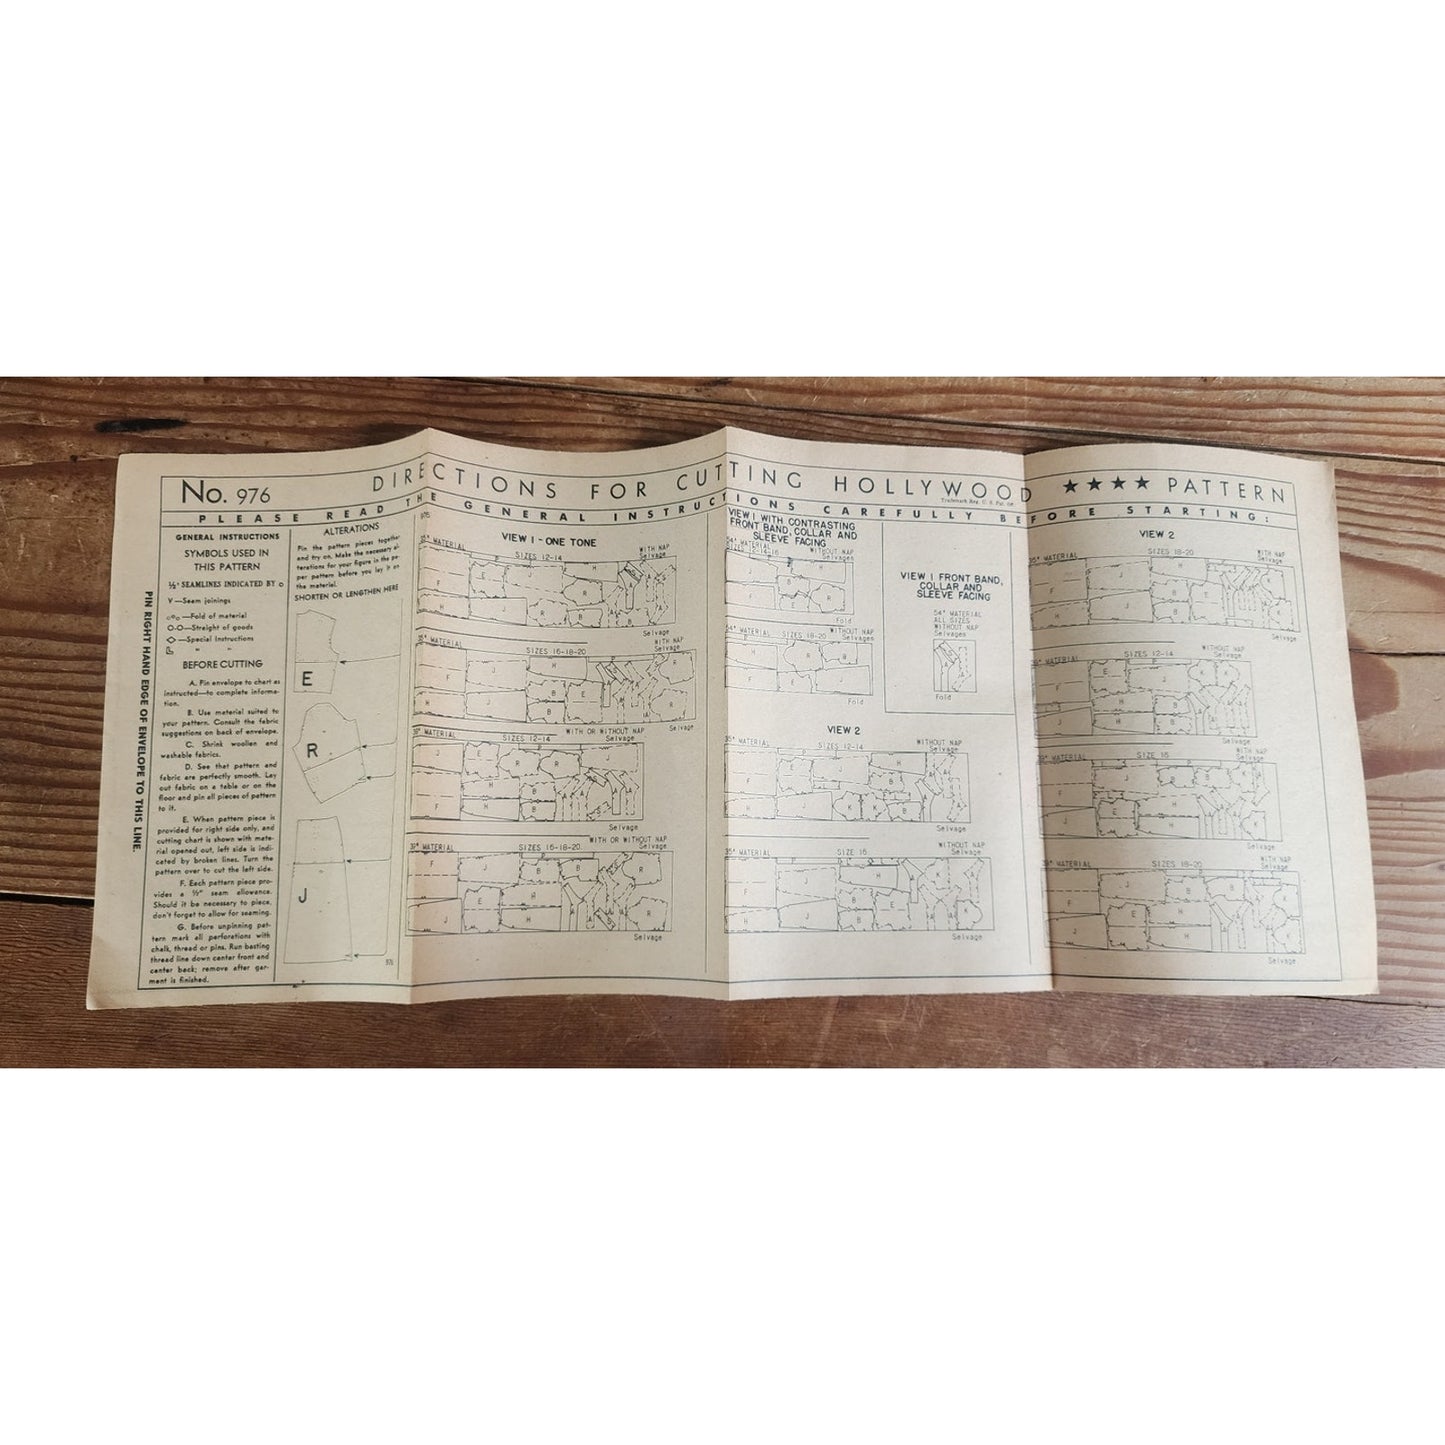 No. 976
DIRECTIONS FOR CUTTING HOLLYWOOD ★★★★ PATTERN
Trademark Reg. U. S. Pat.
PLEASE READ THE GENERAL INSTRUCTIONS CAREFULLY BEFORE STARTING:
PIN RIGHT HAND EDGE OF ENVELOPE TO THIS LINE.
GENERAL INSTRUCTIONS
SYMBOLS USED IN
THIS PATTERN
½" SEAMLINES INDICATED BY o
V—Seam joinings
—Fold of material
O-O—Straight of goods
◇—Special Instructions
" "
BEFORE CUTTING
A. Pin envelope to chart as
instructed—to complete informa-
tion.
B. Use material suited to
your pattern. Consult the fabric
suggestions on back of envelope.
C. Shrink woollen and
washable fabrics.
D. See that pattern and
fabric are perfectly smooth. Lay
out fabric on a table or on the
floor and pin all pieces of pattern
to it.
E. When pattern piece is
provided for right side only, and
cutting chart is shown with mate-
rial opened out, left side is indi-
cated by broken lines. Turn the
pattern over to cut the left side.
F. Each pattern piece pro-
vides a ½" seam allowance.
Should it be necessary to piece,
don't forget to allow for seaming.
G. Before unpinning pat-
tern mark all perforations with
chalk, thread or pins. Run basting
thread line down center front and
center back; remove after gar-
ment is finished.
ALTERATIONS
Pin the pattern pieces together
and try on. Make the necessary al-
terations for your figure in the pa-
per pattern before you lay it on
the material.
SHORTEN OR LENGTHEN HERE
E
R
J
976
976
VIEW 1 - ONE TONE
35" MATERIAL SIZES 12-14 WITH NAP
Selvage
E J H R B
F
Selvage
35" MATERIAL SIZES 16-18-20 WITH NAP
Selvage
J B E R
F H
Selvage
39" MATERIAL SIZES 12-14 WITH OR WITHOUT NAP
Selvage
F E R R J
H B B
Selvage
39" MATERIAL SIZES 16-18-20 WITH OR WITHOUT NAP
F J B B
E H R
Selvage
VIEW 1 WITH CONTRASTING
FRONT BAND, COLLAR AND
SLEEVE FACING
54" MATERIAL WITHOUT NAP
SIZES 12-14-16 Selvages
H J B R
F E B
Fold
54" MATERIAL SIZES 18-20 WITHOUT NAP
Selvages
J R B
F H E
Fold
VIEW 1 FRONT BAND,
COLLAR AND
SLEEVE FACING
54" MATERIAL
ALL SIZES
WITHOUT NAP
Selvages
Fold
VIEW 2
35" MATERIAL SIZES 12-14 WITHOUT NAP
Selvage
F J E B
H B K K
Selvage
35" MATERIAL SIZE 16 WITHOUT NAP
Selvage
F H K
J B E B K
Selvage
VIEW 2
35" MATERIAL SIZES 18-20 WITH NAP
Selvage
F J B K
H E B K
Selvage
SIZES 12-14 WITHOUT NAP
Selvage
J B E K K
F H B
Selvage
SIZE 16 WITHOUT NAP
Selvage
J B K K
F E B H
Selvage
39" MATERIAL SIZES 18-20 WITH NAP
Selvage
F J B B K
E H K
Selvage